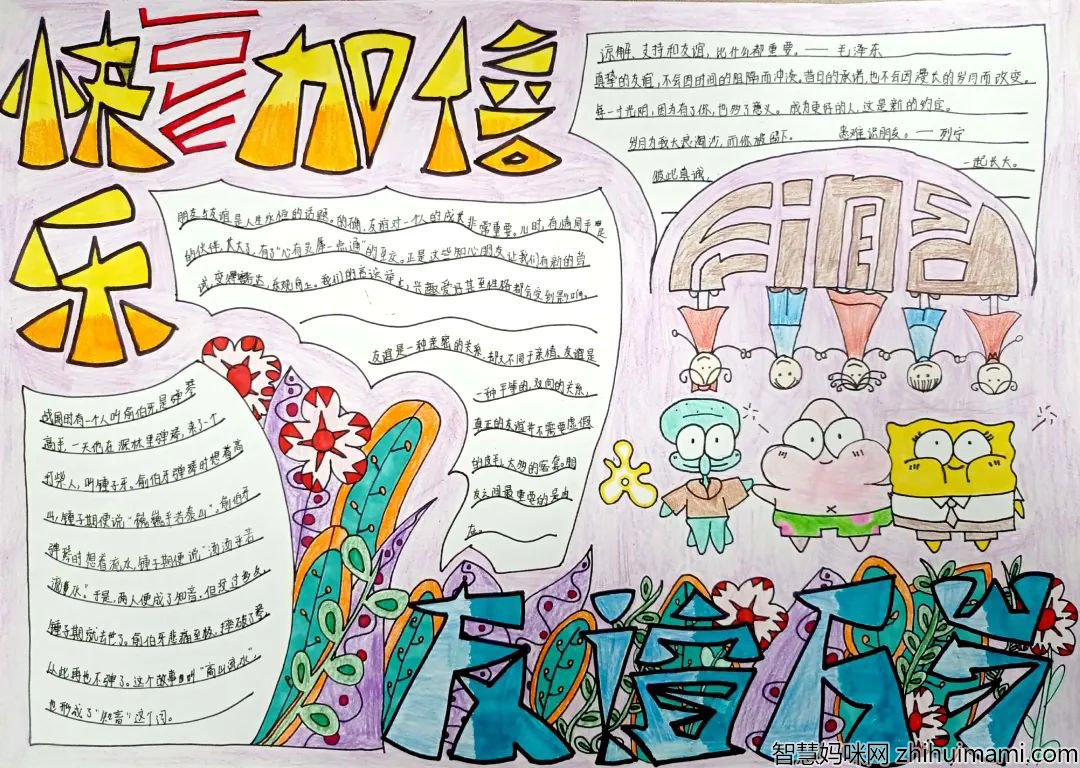 快
乐
加倍
谅解、支持和友谊,比什么都重要。—— 毛泽东
真挚的友谊,不会因时间的阻隔而冲淡,昔日的承诺,也不会因漫长的岁月而改变。
每一寸光阴,因为有了你,也多了意义。成为更好的人,这是新的约定。
岁月为我大浪淘沙,而你被留下。 患难识朋友。—— 列宁
彼此真诚, 一起长大。
朋友与友谊是人生永恒的话题。的确,友谊对一个人的成长非常重要。儿时,有情同手足
的伙伴,长大了,有了“心有灵犀一点通”的至交。正是这些知心朋友让我们有新的尝
试,变得豁达,乐观向上。我们的言谈举止,兴趣爱好甚至性格都会受到影响。
友谊是一种亲密的关系,却又不同于亲情。友谊是
一种平等的,双向的关系,
真正的友谊并不需要虚假
的
友之间最重要的是自
在。
战国时有一个人叫俞伯牙,是弹琴
高手,一天他在深林里弹琴,来了一个
打柴人,叫锺子牙。俞伯牙弹琴时想着高
山,锺子期便说“巍巍乎若泰山”。俞伯牙
弹琴时想着流水,锺子期便说“汤汤乎若
流水”。于是,两人便成了知音。但没过多久,
锺子期就去世了。俞伯牙悲痛至极,摔破了琴,
从此再也不弹了。这个故事叫“高山流水”,
也形成了“知音”这个词。
友谊
智慧妈咪网 zhihuimami.com